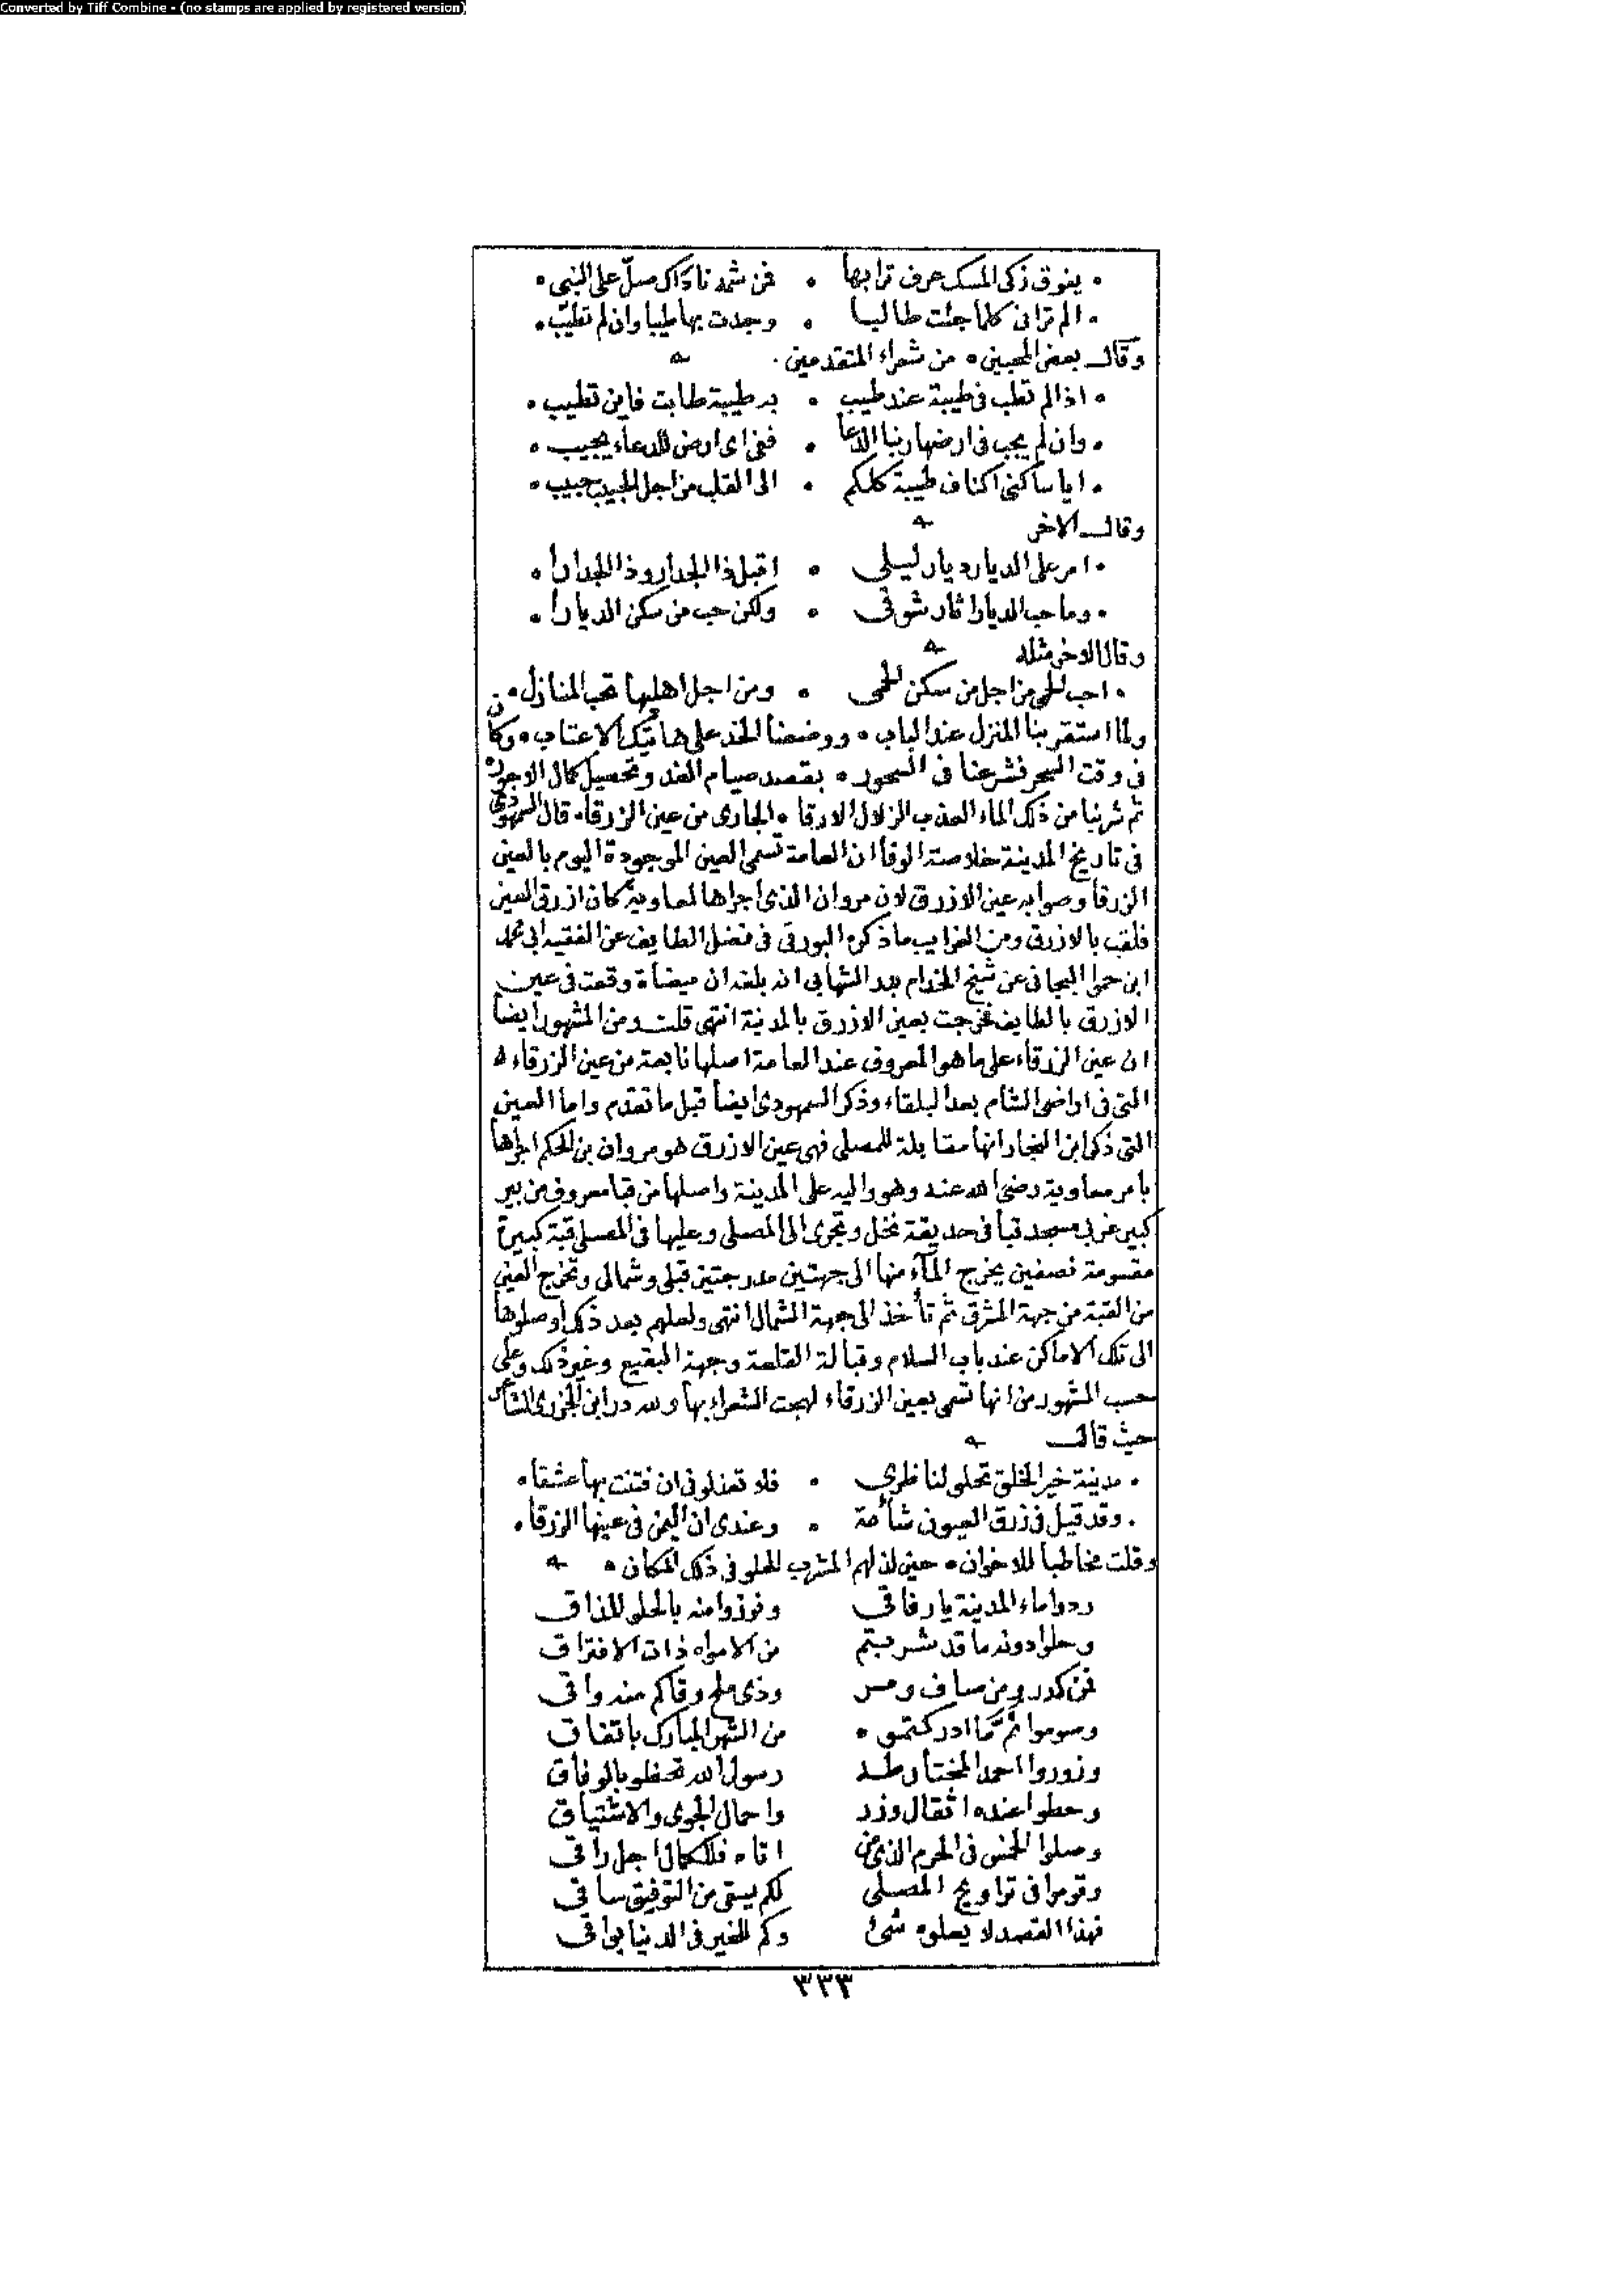 Converted by Tiff Combine - (no stamps are applied by registered version)
• يفوق زكى المسك عرف ترابها • فمن شمه ناداك صلّ على النبى •
• الم ترانى كلما جئت طالبا • وجدت بها طيبا وان لم تطيّب •
وقال بعض المحبين • من شعراء المتقدمين •
• اذا لم تطب فى طيبة عند طيب • به طيبة طابت فاين تطيب •
• وان لم يجب فى ارضها ربنا الدعا • ففى اى ارض للدعاء يجيب •
• ايا ساكنى اكناف طيبة كلكم • الى القلب من اجل الحبيب حبيب •
وقال الاخر
• امر على الديار ديار ليلى • اقبل ذا الجدار وذا الجدارا •
• وما حب الديار اثار شوقى • ولكن حب من سكن الديارا •
وقال الاخر مثله
• احب الحى من اجل من سكن الحمى • ومن اجل اهليها تحب المنازل •
ولما استقر بنا المنزل عند الباب • ووضعنا الخد على هاتيك الاعتاب • وكان
فى وقت السحر فشرعنا فى السحور • بقصد صيام الغد وتحصيل كمال الاجور •
ثم شربنا من ذلك الماء العذب الزلال الارقا • الجارى من عين الزرقا • قال السمهودى
فى تاريخ المدينة خلاصة الوفا ان العامة تسمى العين الموجودة اليوم بالعين
الزرقا وصوابه عين الازرق لان مروان الذى اجراها لمعاوية كان ازرق العين
فلقب بالازرق ومن الغرايب ما ذكره البورقى فى فضل الطايف عن الفقيه ابى محمد
ابن حمو البجائى عن شيخ الخدام بدر الشهابى انه بلغه ان ميضأة وقعت فى عين
الازرق بالطايف فخرجت بعين الازرق بالمدينة انتهى قلت ومن المشهور ايضا
ان عين الزرقاء على ما هو المعروف عند العامة اصلها نابعة من عين الزرقاء •
التى فى اراضى الشام بعد البلقاء وذكر السمهودى ايضا قبل ما تقدم واما العين
التى ذكر ابن النجار انها مقابلة للمصلى فهى عين الازرق هو مروان بن الحكم اجراها
بامر معاوية رضى الله عنه وهو واليه على المدينة واصلها من قبا معروف من بير
كبير غربى مسجد قبا فى حديقة نخل وتجرى الى المصلى وعليها فى المصلى قبة كبيرة
مقسومة نصفين يخرج المآء منها الى جهتين مدرجتين قبلى وشمالى وتخرج العين
من القبة من جهة المشرق ثم تأخذ الى جهة الشمال انتهى ولعلهم بعد ذلك اوصلوها
الى تلك الاماكن عند باب السلام وقبالة القلعة وجهة البقيع وغير ذلك وعلى
حسب المشهور من انها تسمى بعين الزرقاء لهجت الشعراء بها ولله در ابن الجزرى الشاعر
حيث قال
• مدينة خير الخلق تحلو لناظرى • فلا تعذلونى ان فتنت بها عشقا •
• وقد قيل فى زرق العيون شأمة • وعندى ان اليمن فى عينها الزرقا •
وقلت مخاطبا للاخوان • حين لذ لهم المشرب الحلو فى ذلك المكان •
ردوا ماء المدينة يا رفاقى وفوزوا منه بالحلو المذاق
وخلوا دونه ما قد شربتم من الامواه ذات الافتراق
فمن كدر ومن صاف ومر وذى ملح وقاكم منه واقى
وصوموا ثم ما ادركتموه • من الشهر المبارك باتفاق
وزوروا احمد المختار طه رسول الله تحظو بالوفاق
وحطوا عنده اثقال وزر واحمال الجوى والاشتياق
وصلوا الخمس فى الحرم الذى من اتاه فللكمال اجل راقى
وقوموا فى تراويح المصلى لكم يسقى من التوفيق ساقى
فهذا القصد لا يعلوه شئ وكم للخير فى الدنيا بواقى
٣٣٣